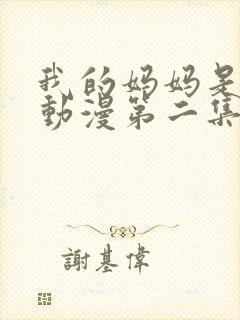 我的妈妈是
動漫第二集
謝基偉